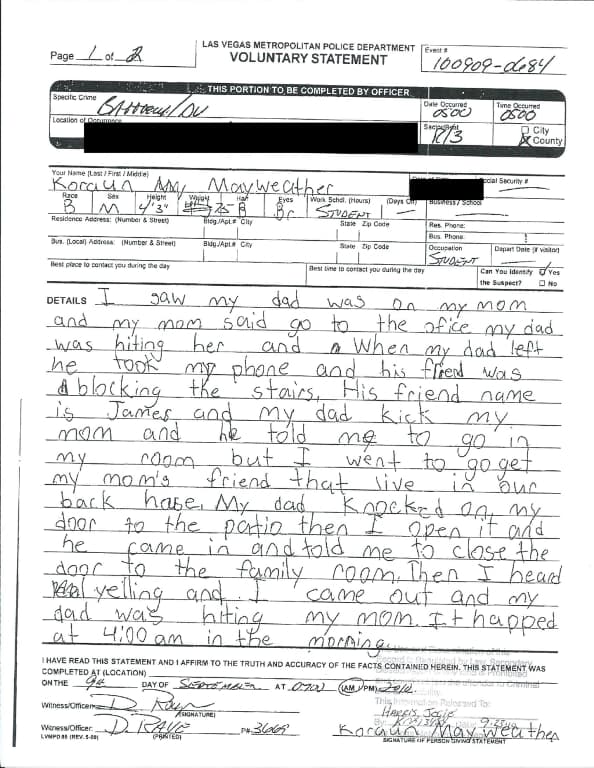 LAS VEGAS METROPOLITAN POLICE DEPARTMENT
Page 1 of 2
VOLUNTARY STATEMENT
Event #
100909-0684
THIS PORTION TO BE COMPLETED BY OFFICER
Specific Crime
BATTERY/DV
Date Occurred
0500
Time Occurred
0500
Location of Occurrence
Sector/Beat
R/3
City
County
Your Name (Last / First / Middle)
Koraun Mayweather
Social Security #
Race
B
Sex
M
Height
4'3"
Weight
75
Hair
B
Eyes
Br
Work Schdl. (Hours)
STUDENT
(Days Off)
Business / School
Residence Address: (Number & Street)
Bldg./Apt.# City
State Zip Code
Res. Phone:
Bus. Phone:
Bus. (Local) Address: (Number & Street)
Bldg./Apt.# City
State Zip Code
Occupation
STUDENT
Depart Date (if visitor)
Best place to contact you during the day
Best time to contact you during the day
Can You Identify the Suspect?
Yes
No
DETAILS I saw my dad was on my mom
and my mom said go to the ofice my dad
was hiting her and When my dad left
he took my phone and his friend was
blocking the stairs, His friend name
is James and my dad kick my
mom and he told me to go in
my room but I went to go get
my mom's friend that live in our
back hase, My dad Knocked on my
door to the patio then I open it and
he came in and told me to close the
door to the family room. Then I heard
yelling and I came out and my
dad was hiting my mom. It happed
at 4:00 am in the morning.
I HAVE READ THIS STATEMENT AND I AFFIRM TO THE TRUTH AND ACCURACY OF THE FACTS CONTAINED HEREIN. THIS STATEMENT WAS
COMPLETED AT (LOCATION)
ON THE 9th DAY OF SEPTEMBER AT 0700 (AM/PM), 2010.
This Information Released To:
Witness/Officer:
(SIGNATURE)
By:
Witness/Officer: D. RAVE P# 3669
(PRINTED)
Koraun Mayweather
LVMPD 85 (REV. 5-00)
SIGNATURE OF PERSON GIVING STATEMENT